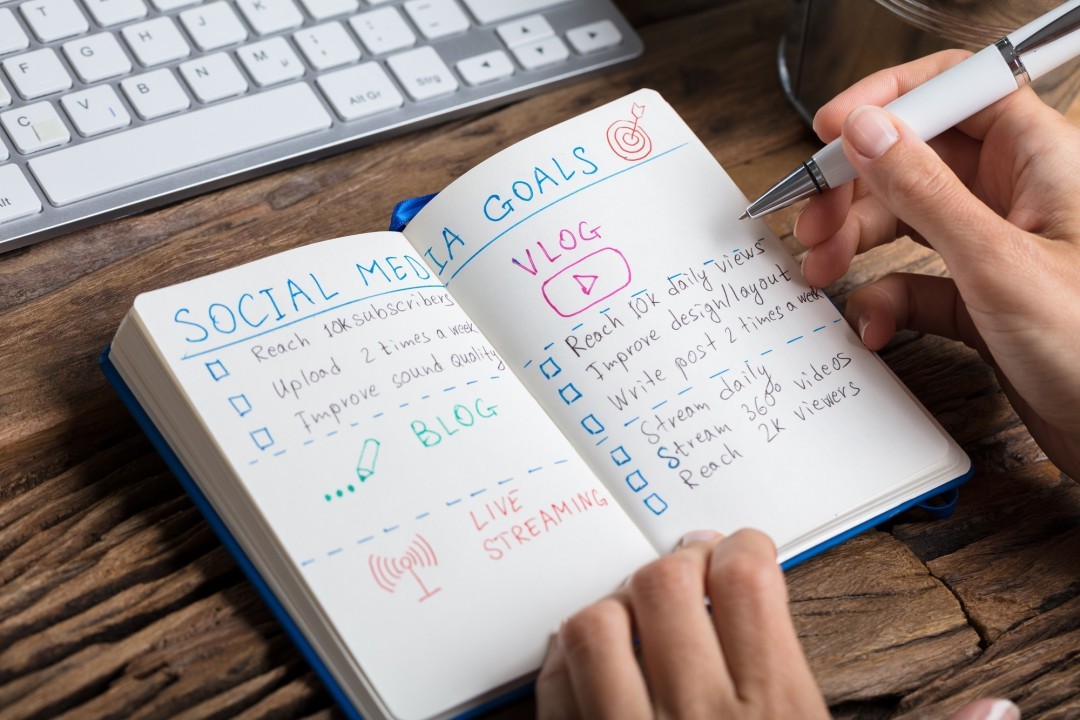 T
J
K
L
F
G
H
C
V
B
N
M
µ
;
:
Alt Gr
Strg
Alt
SOCIAL MEDIA GOALS
Reach 10k subscribers
Upload 2 times a week
Improve sound quality
VLOG
Reach 10k daily views
Improve design/layout
Write post 2 times a week
BLOG
Stream daily
Stream 360° videos
Reach 2k viewers
LIVE
STREAMING